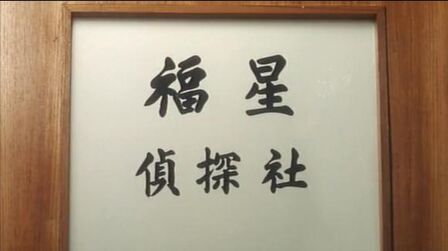 福星
偵探社